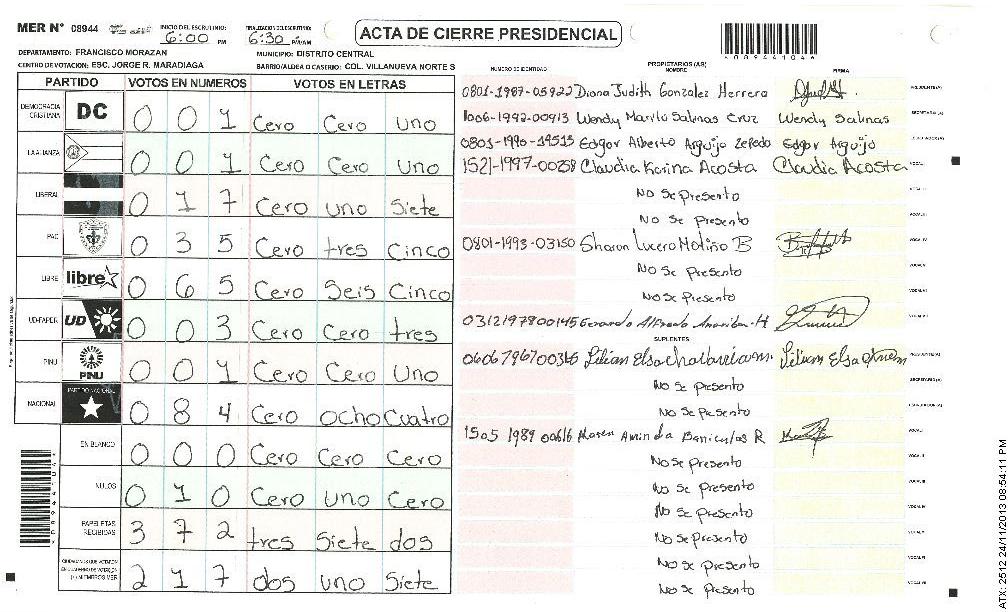 MER N° 08944 INICIO DEL ESCRUTINIO: 6:00 PM FINALIZACION DEL ESCRUTINIO: 6:30 PM/AM
ACTA DE CIERRE PRESIDENCIAL
*089441044*
DEPARTAMENTO: FRANCISCO MORAZAN MUNICIPIO: DISTRITO CENTRAL
CENTRO DE VOTACION: ESC. JORGE R. MARADIAGA BARRIO/ALDEA O CASERIO: COL. VILLANUEVA NORTE S
PARTIDO VOTOS EN NUMEROS VOTOS EN LETRAS
DEMOCRACIA CRISTIANA DC 0 0 1 Cero Cero Uno
LA ALIANZA 0 0 1 Cero Cero Uno
LIBERAL 0 1 7 Cero Uno Siete
PAC 0 3 5 Cero tres Cinco
LIBRE libre 0 6 5 Cero Seis Cinco
UD-FAPER UD 0 0 3 Cero Cero tres
PINU PINU 0 0 1 Cero Cero Uno
NACIONAL PARTIDO NACIONAL 0 8 4 Cero Ocho Cuatro
EN BLANCO 0 0 0 Cero Cero Cero
NULOS 0 1 0 Cero Uno Cero
PAPELETAS RECIBIDAS 3 7 2 tres Siete dos
CIUDADANOS QUE VOTARON EN CUADERNO DE VOTACION (+) MIEMBROS MER 2 1 7 dos uno Siete
NUMERO DE IDENTIDAD PROPIETARIOS (AS) NOMBRE FIRMA
0801-1987-05922 Diana Judith Gonzalez Herrera PRESIDENTE(A)
1006-1992-00913 Wendy Marilu Salinas Cruz Wendy Salinas SECRETARIO(A)
0801-1995-19515 Edgar Alberto Arguijo Zepeda Edgar Arguijo ESCRUTADOR(A)
1521-1997-00258 Claudia Karina Acosta Claudia Acosta VOCAL I
No Se Presento VOCAL II
No Se Presento VOCAL III
0801-1993-03150 Sharon Lucero Motiño B VOCAL IV
No Se Presento VOCAL V
No Se Presento VOCAL VI
0312197800145 Gerardo Alfredo VOCAL VII
SUPLENTES
Lilian Elsa Lilian Elsa PRESIDENTE(A)
No Se Presento SECRETARIO(A)
No Se Presento ESCRUTADOR(A)
1505 1989 00616 Karen Aminda R VOCAL I
No Se Presento VOCAL II
No Se Presento VOCAL III
No Se Presento VOCAL IV
No Se Presento VOCAL V
No Se Presento VOCAL VI
No Se Presento VOCAL VII
*089441044*
ATX-2512 24/11/2013 08:54:11 PM